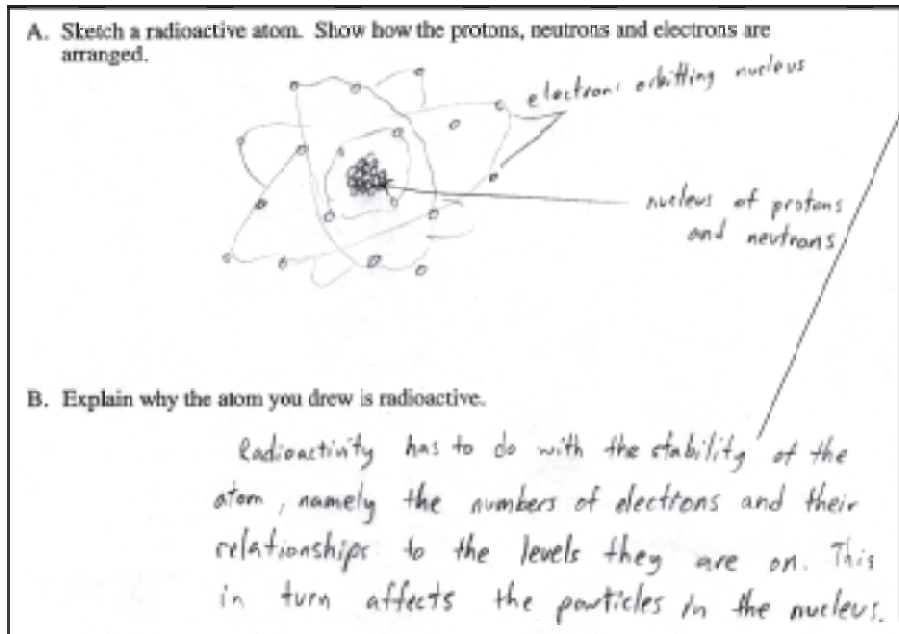 A. Sketch a radioactive atom. Show how the protons, neutrons and electrons are
arranged.
electrons orbitting nucleus
nucleus of protons
and neutrons
B. Explain why the atom you drew is radioactive.
Radioactivity has to do with the stability of the
atom, namely the numbers of electrons and their
relationships to the levels they are on. This
in turn affects the particles in the nucleus.